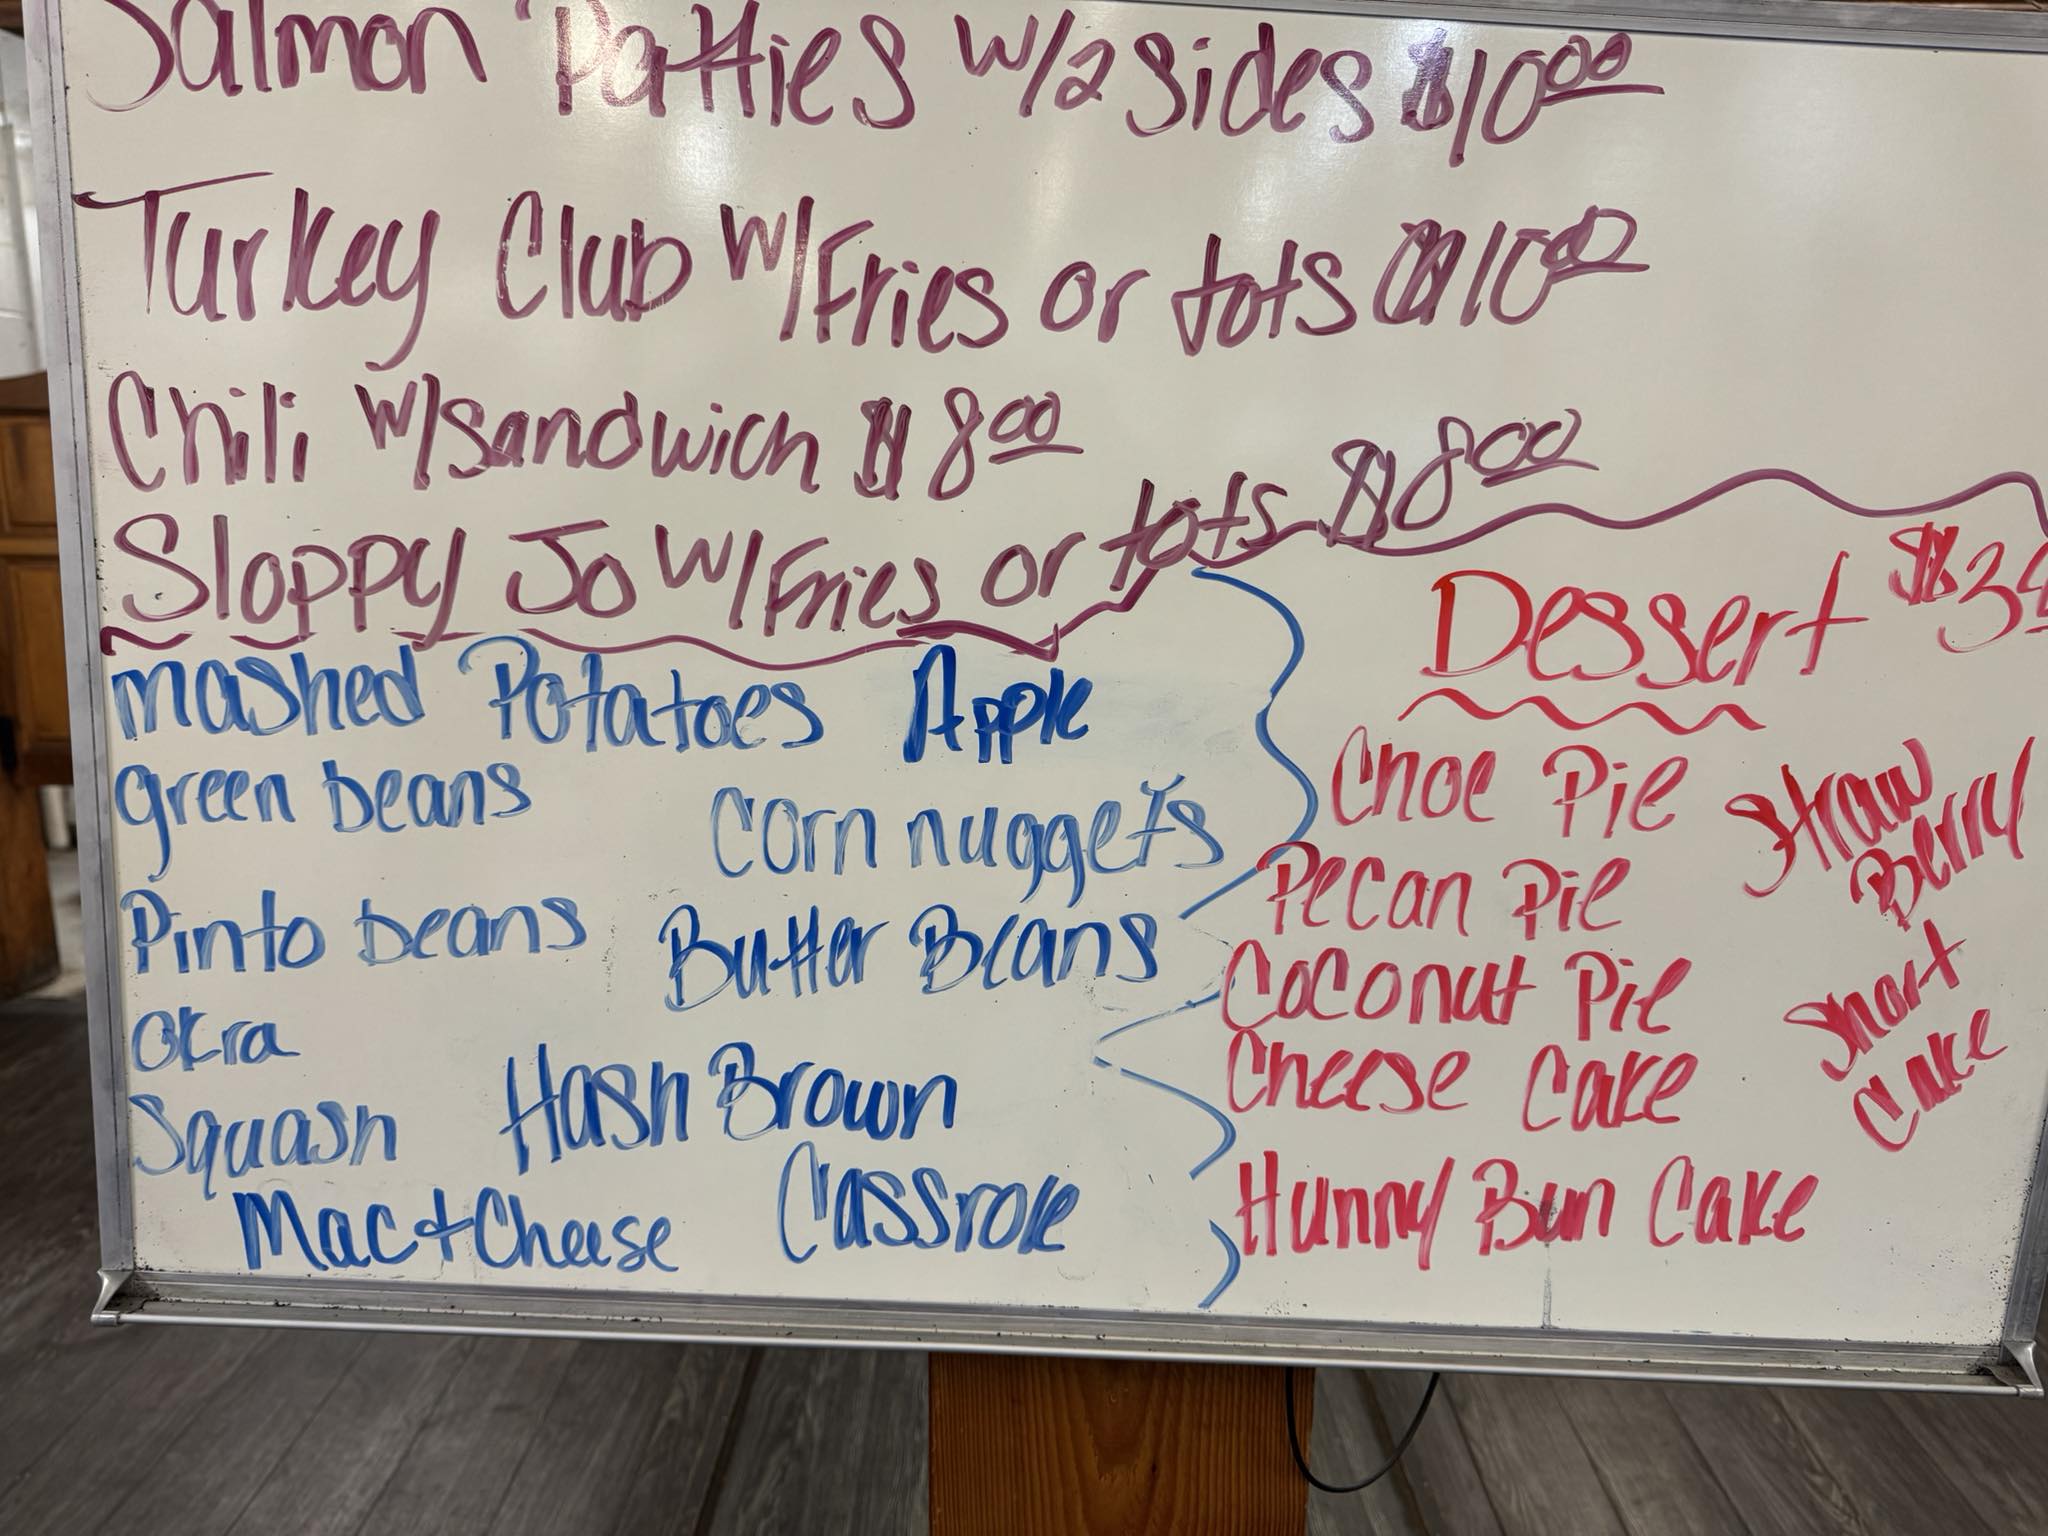 Salmon Patties w/2 sides $10.00
Turkey Club w/Fries or tots $10.00
Chili w/sandwich $8.00
Sloppy Jo w/Fries or tots $8.00
mashed Potatoes Apple
green beans corn nuggets
Pinto beans Butter Beans
okra
Squash Hash Brown
Cassrole
Mac + Cheese
Dessert
Choc Pie
Pecan Pie
Coconut Pie
Cheese Cake
Hunny Bun Cake
Straw
Berry
Short
Cake